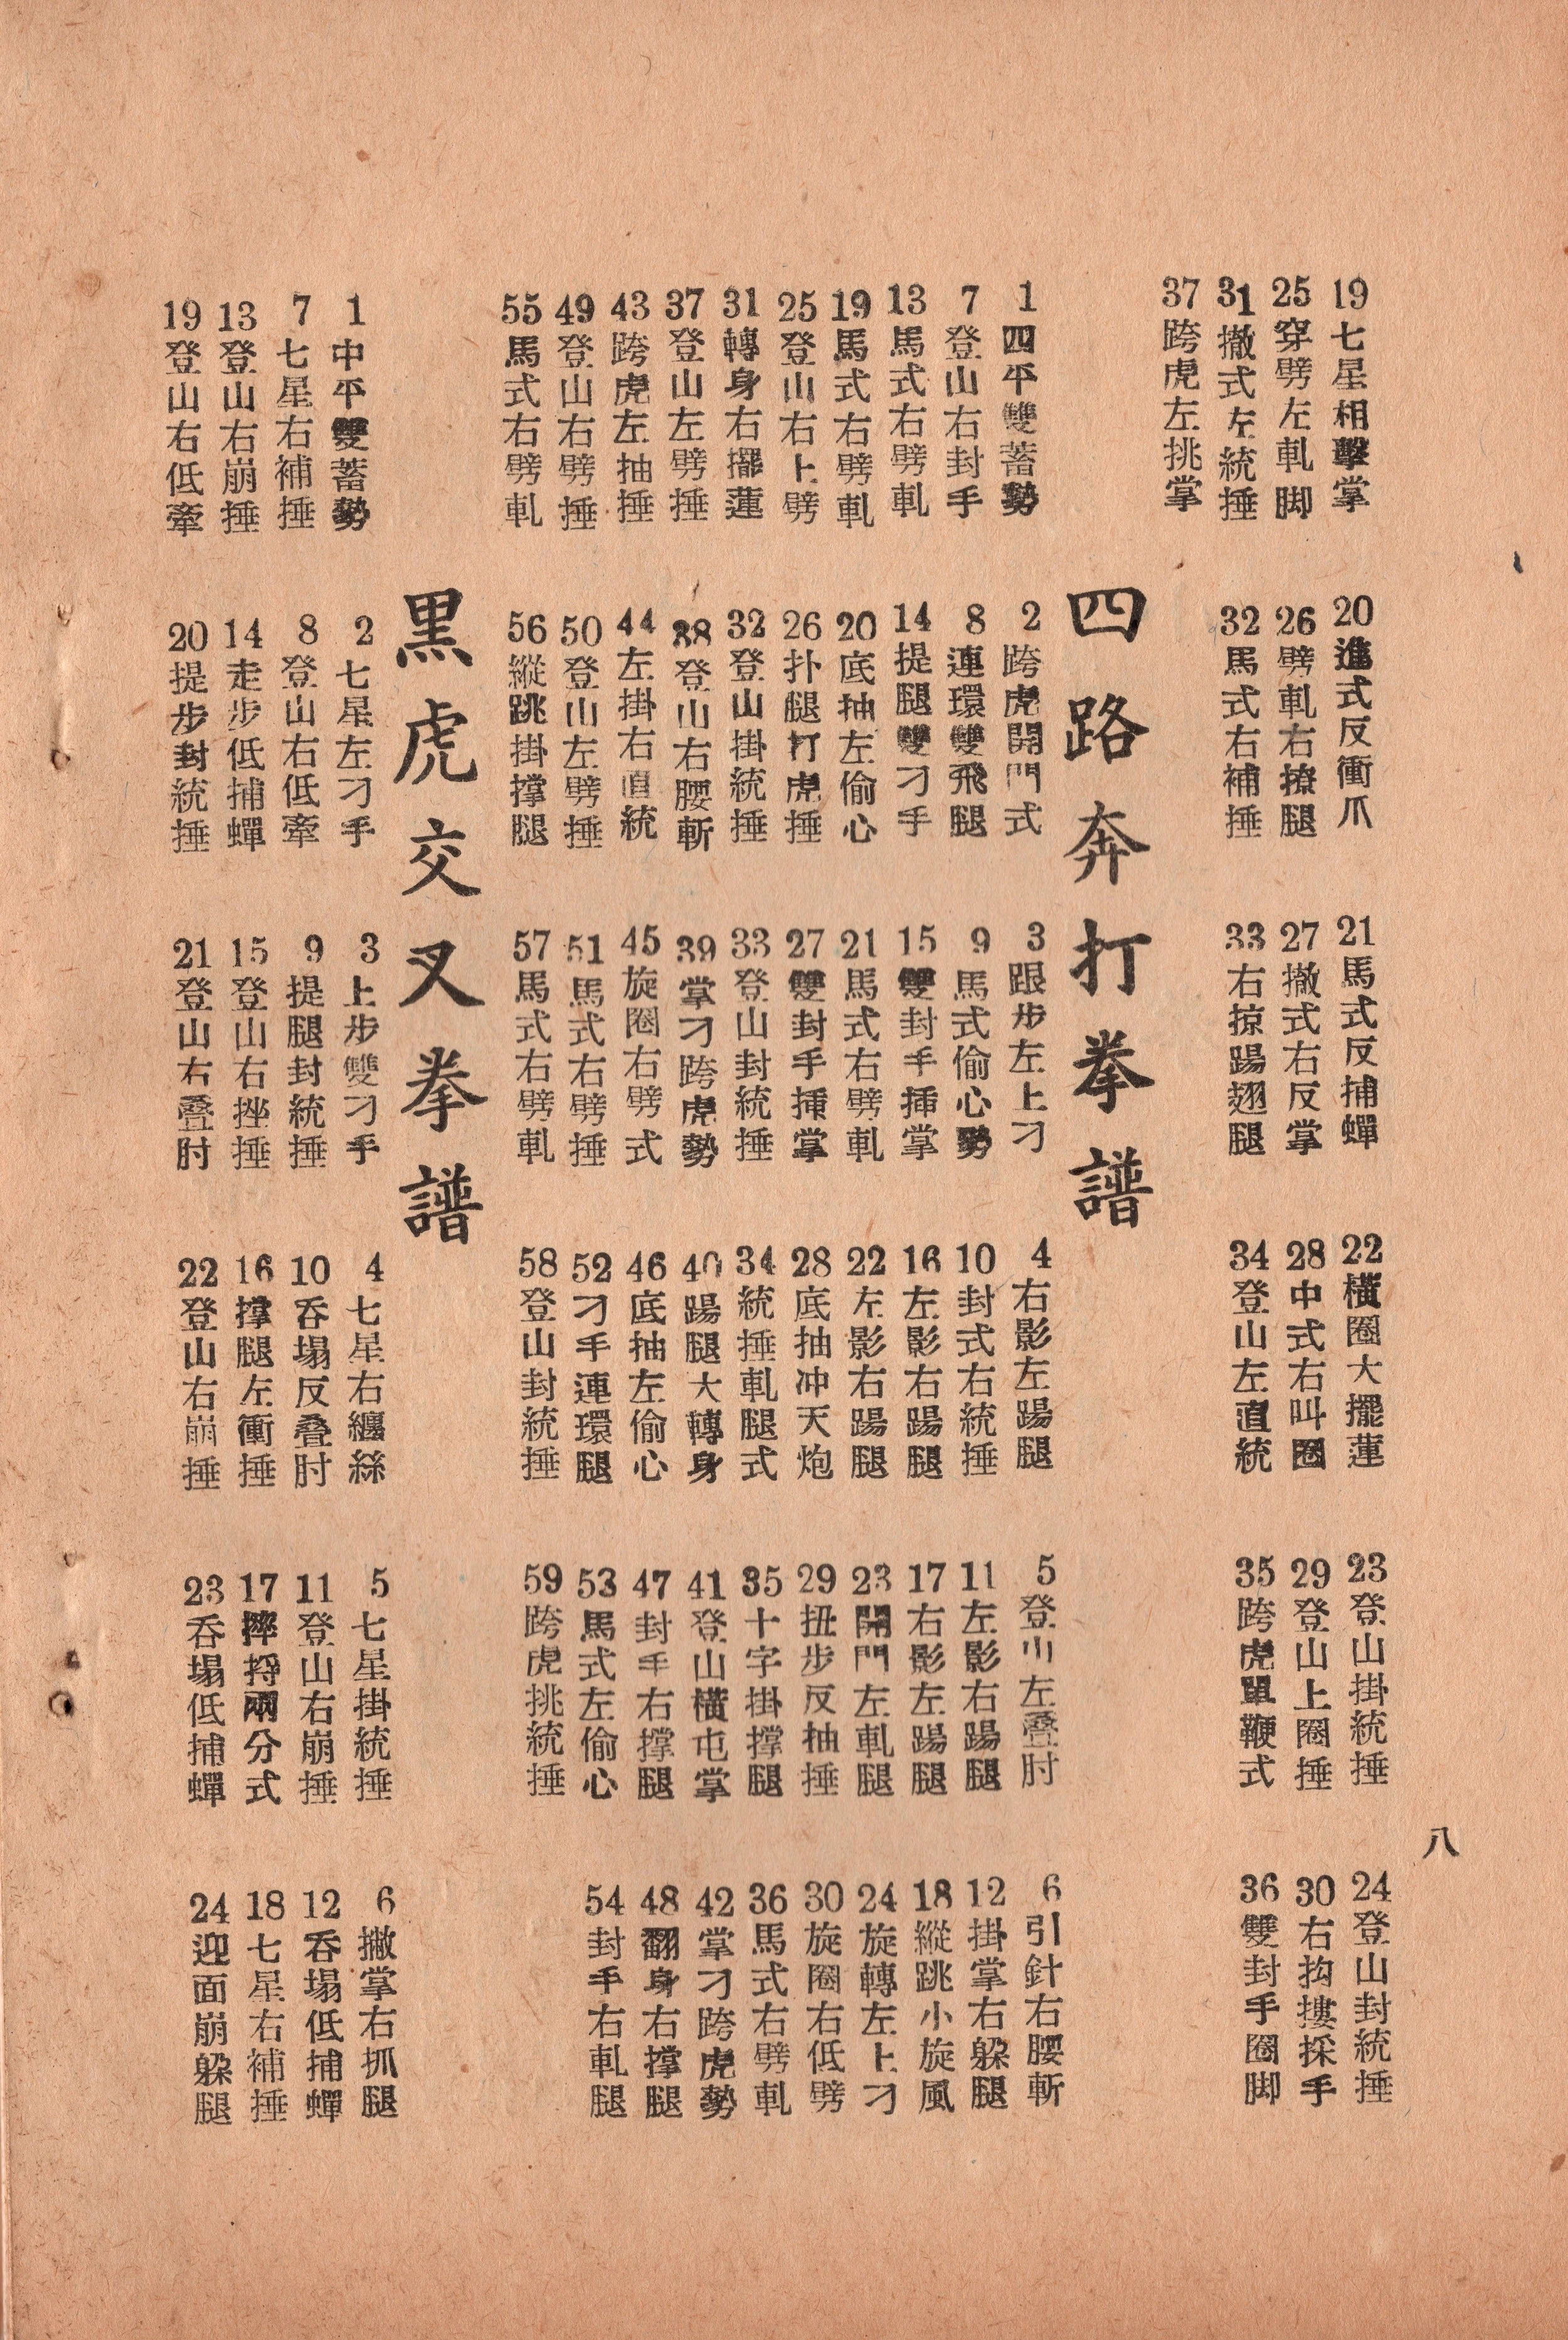 八
19七星相擊掌 20進式反衝爪 21馬式反捕蟬 22橫圈大擺蓮 23登山掛統捶 24登山封統捶
25穿劈左軋脚 26劈軋右撩腿 27撤式右反掌 28中式右叫圈 29登山上圈捶 30右抅摟採手
31撤式左統捶 32馬式右補捶 33右掠踢翅腿 34登山左直統 35跨虎單鞭式 36雙封手圈脚
37跨虎左挑掌
四路奔打拳譜
1四平雙蓄勢 2跨虎開門式 3跟步左上刁 4右影左踢腿 5登山左叠肘 6引針右腰斬
7登山右封手 8連環雙飛腿 9馬式偷心勢 10封式右統捶 11左影右踢腿 12掛掌右躱腿
13馬式右劈軋 14提腿雙刁手 15雙封手揷掌 16左影右踢腿 17右影左踢腿 18縱跳小旋風
19馬式右劈軋 20底抽左偷心 21馬式右劈軋 22左影右踢腿 23開門左軋腿 24旋轉左上刁
25登山右上劈 26扑腿打虎捶 27雙封手揷掌 28底抽冲天炮 29扭步反抽捶 30旋圈右低劈
31轉身右擺蓮 32登山掛統捶 33登山封統捶 34統捶軋腿式 35十字掛撑腿 36馬式右劈軋
37登山左劈捶 38登山右腰斬 39掌刁跨虎勢 40踢腿大轉身 41登山橫屯掌 42掌刁跨虎勢
43跨虎左抽捶 44左掛右直統 45旋圈右劈式 46底抽左偷心 47封手右撑腿 48翻身右撑腿
49登山右劈捶 50登山左劈捶 51馬式右劈捶 52刁手連環腿 53馬式左偷心 54封手右軋腿
55馬式右劈軋 56縱跳掛撑腿 57馬式右劈軋 58登山封統捶 59跨虎挑統捶
黑虎交叉拳譜
1中平雙蓄勢 2七星左刁手 3上步雙刁手 4七星右纏絲 5七星掛統捶 6撇掌右抓腿
7七星右補捶 8登山右低牽 9提腿封統捶 10吞塌反叠肘 11登山右崩捶 12吞塌低捕蟬
13登山右崩捶 14走步低捕蟬 15登山右挫捶 16撑腿左衝捶 17摔掙兩分式 18七星右補捶
19登山右低牽 20提步封統捶 21登山右叠肘 22登山右崩捶 23吞塌低捕蟬 24迎面崩躱腿